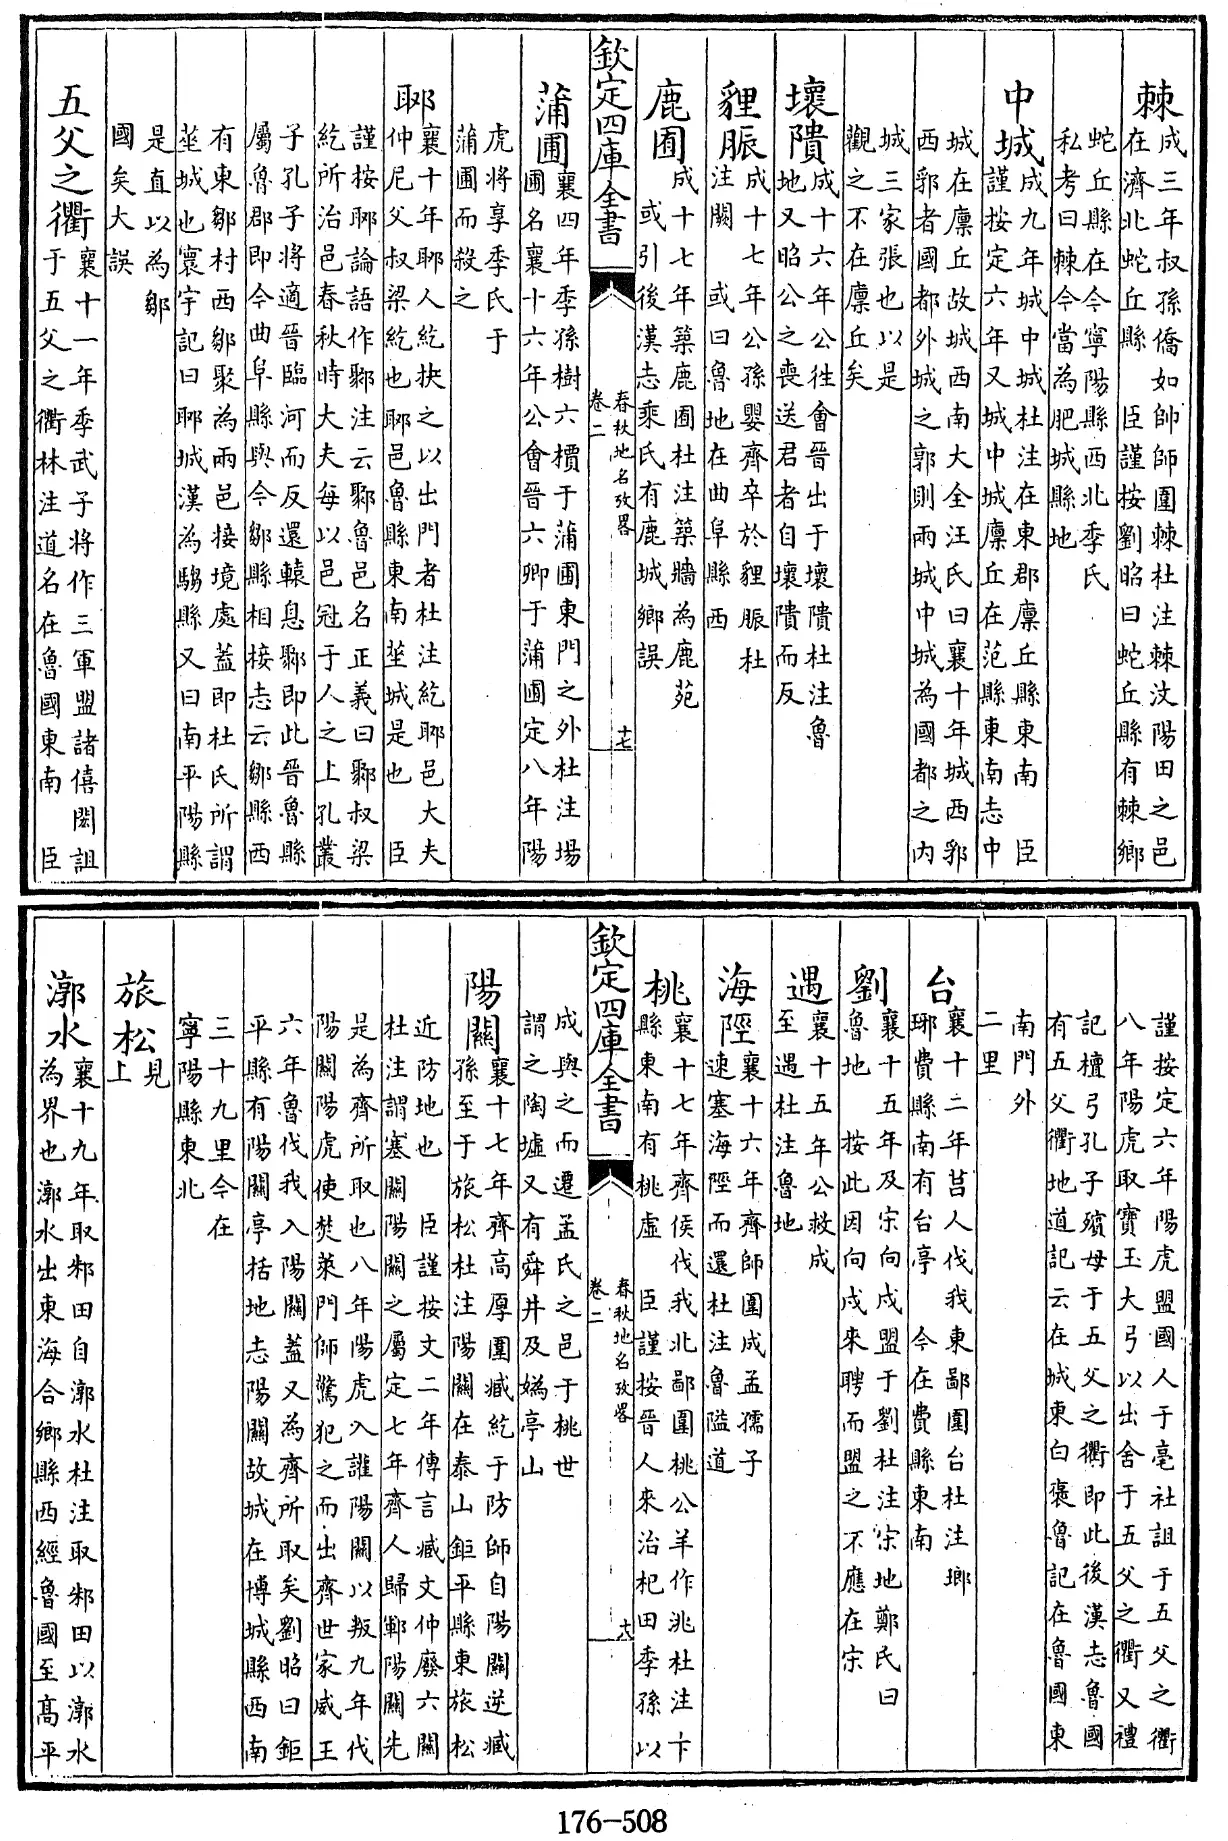 棘成三年叔孫僑如帥師圍棘杜注棘汶陽田之邑
在濟北蛇丘縣　臣謹按劉昭曰蛇丘縣有棘鄉
蛇丘縣在今寧陽縣西北季氏
私考曰棘今當為肥城縣地
中城成九年城中城杜注在東郡廩丘縣東南　臣
謹按定六年又城中城廩丘在范縣東南志中
城在廩丘故城西南大全汪氏曰襄十年城西郛
西郛者國都外城之郭則兩城中城為國都之內
城三家張也以是
觀之不在廩丘矣
壞隤成十六年公徃會晉出于壞隤杜注魯
地又昭公之喪送君者自壞隤而反
貍脤成十七年公孫嬰齊卒於貍脤杜
注闕　或曰魯地在曲阜縣西
鹿囿成十七年築鹿囿杜注築牆為鹿苑
或引後漢志乘氏有鹿城鄉誤
欽定四庫全書
春秋地名攷畧
卷二
十七
蒲圃襄四年季孫樹六檟于蒲圃東門之外杜注場
圃名襄十六年公會晉六卿于蒲圃定八年陽
虎將享季氏于
蒲圃而殺之
郰襄十年郰人紇抉之以出門者杜注紇郰邑大夫
仲尼父叔梁紇也郰邑魯縣東南莝城是也　臣
謹按郰論語作鄹注云鄹魯邑名正義曰鄹叔梁
紇所治邑春秋時大夫每以邑冠于人之上孔叢
子孔子將適晉臨河而反還轅息鄹即此晉魯縣
屬魯郡即今曲阜縣與今鄒縣相接志云鄒縣西
有東鄒村西鄒聚為兩邑接境處蓋即杜氏所謂
莝城也寰宇記曰郰城漢為騶縣又曰南平陽縣
是直以為鄒
國矣大誤
五父之衢襄十一年季武子將作三軍盟諸僖閎詛
于五父之衢林注道名在魯國東南　臣
謹按定六年陽虎盟國人于亳社詛于五父之衢
八年陽虎取寶玉大弓以出舍于五父之衢又禮
記檀弓孔子殯母于五父之衢即此後漢志魯國
有五父衢地道記云在城東白褒魯記在魯國東
南門外
二里
台襄十二年莒人伐我東鄙圍台杜注瑯
琊費縣南有台亭　今在費縣東南
劉襄十五年及宋向戌盟于劉杜注宋地鄭氏曰
魯地　按此因向戌來聘而盟之不應在宋
遇襄十五年公救成
至遇杜注魯地
海陘襄十六年齊師圍成孟孺子
速塞海陘而還杜注魯隘道
桃襄十七年齊侯伐我北鄙圍桃公羊作洮杜注卞
縣東南有桃虛　臣謹按晉人來治杞田季孫以
欽定四庫全書
春秋地名攷畧
卷二
十八
成與之而遷孟氏之邑于桃世
謂之陶墟又有舜井及媯亭山
陽關襄十七年齊高厚圍臧紇于防師自陽關逆臧
孫至于旅松杜注陽關在泰山鉅平縣東旅松
近防地也　臣謹按文二年傳言臧文仲廢六關
杜注謂塞關陽關之屬定七年齊人歸鄆陽關先
是為齊所取也八年陽虎入讙陽關以叛九年伐
陽關陽虎使焚萊門師驚犯之而出齊世家威王
六年魯伐我入陽關蓋又為齊所取矣劉昭曰鉅
平縣有陽關亭括地志陽關故城在博城縣西南
三十九里今在
寧陽縣東北
旅松見
上
漷水襄十九年取邾田自漷水杜注取邾田以漷水
為界也漷水出東海合鄉縣西經魯國至高平
176-508